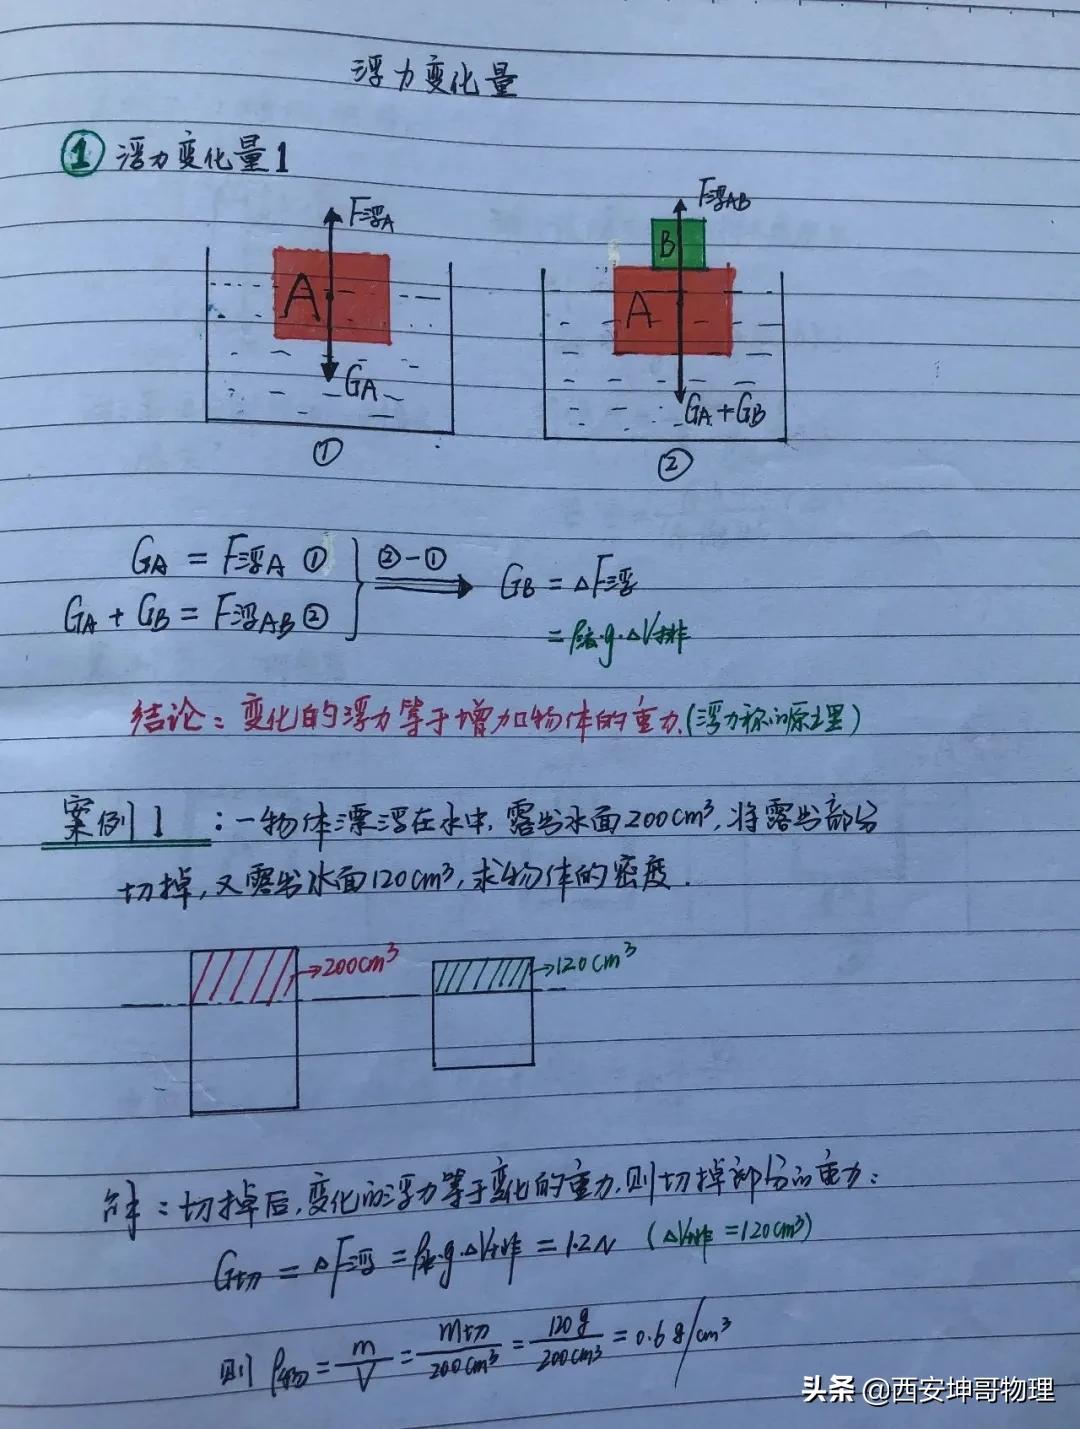 浮力变化量
① 浮力变化量1
F浮A
F浮AB
B
A
A
GA
GA+GB
①
②
GA = F浮A ①
②-①
GB = △F浮
GA + GB = F浮AB ②
= ρ液·g·△V排
结论：变化的浮力等于增加物体的重力.(浮力称的原理)
案例1：一物体漂浮在水中,露出水面200cm³,将露出部分
切掉,又露出水面120cm³,求物体的密度.
200cm³
120cm³
解：切掉后,变化的浮力等于变化的重力.则切掉部分的重力：
G切 = △F浮 = ρ水·g·△V排 = 1.2N (△V排=120cm³)
则 ρ物 = m/V = m切/200cm³ = 120g/200cm³ = 0.6g/cm³
头条 @西安坤哥物理